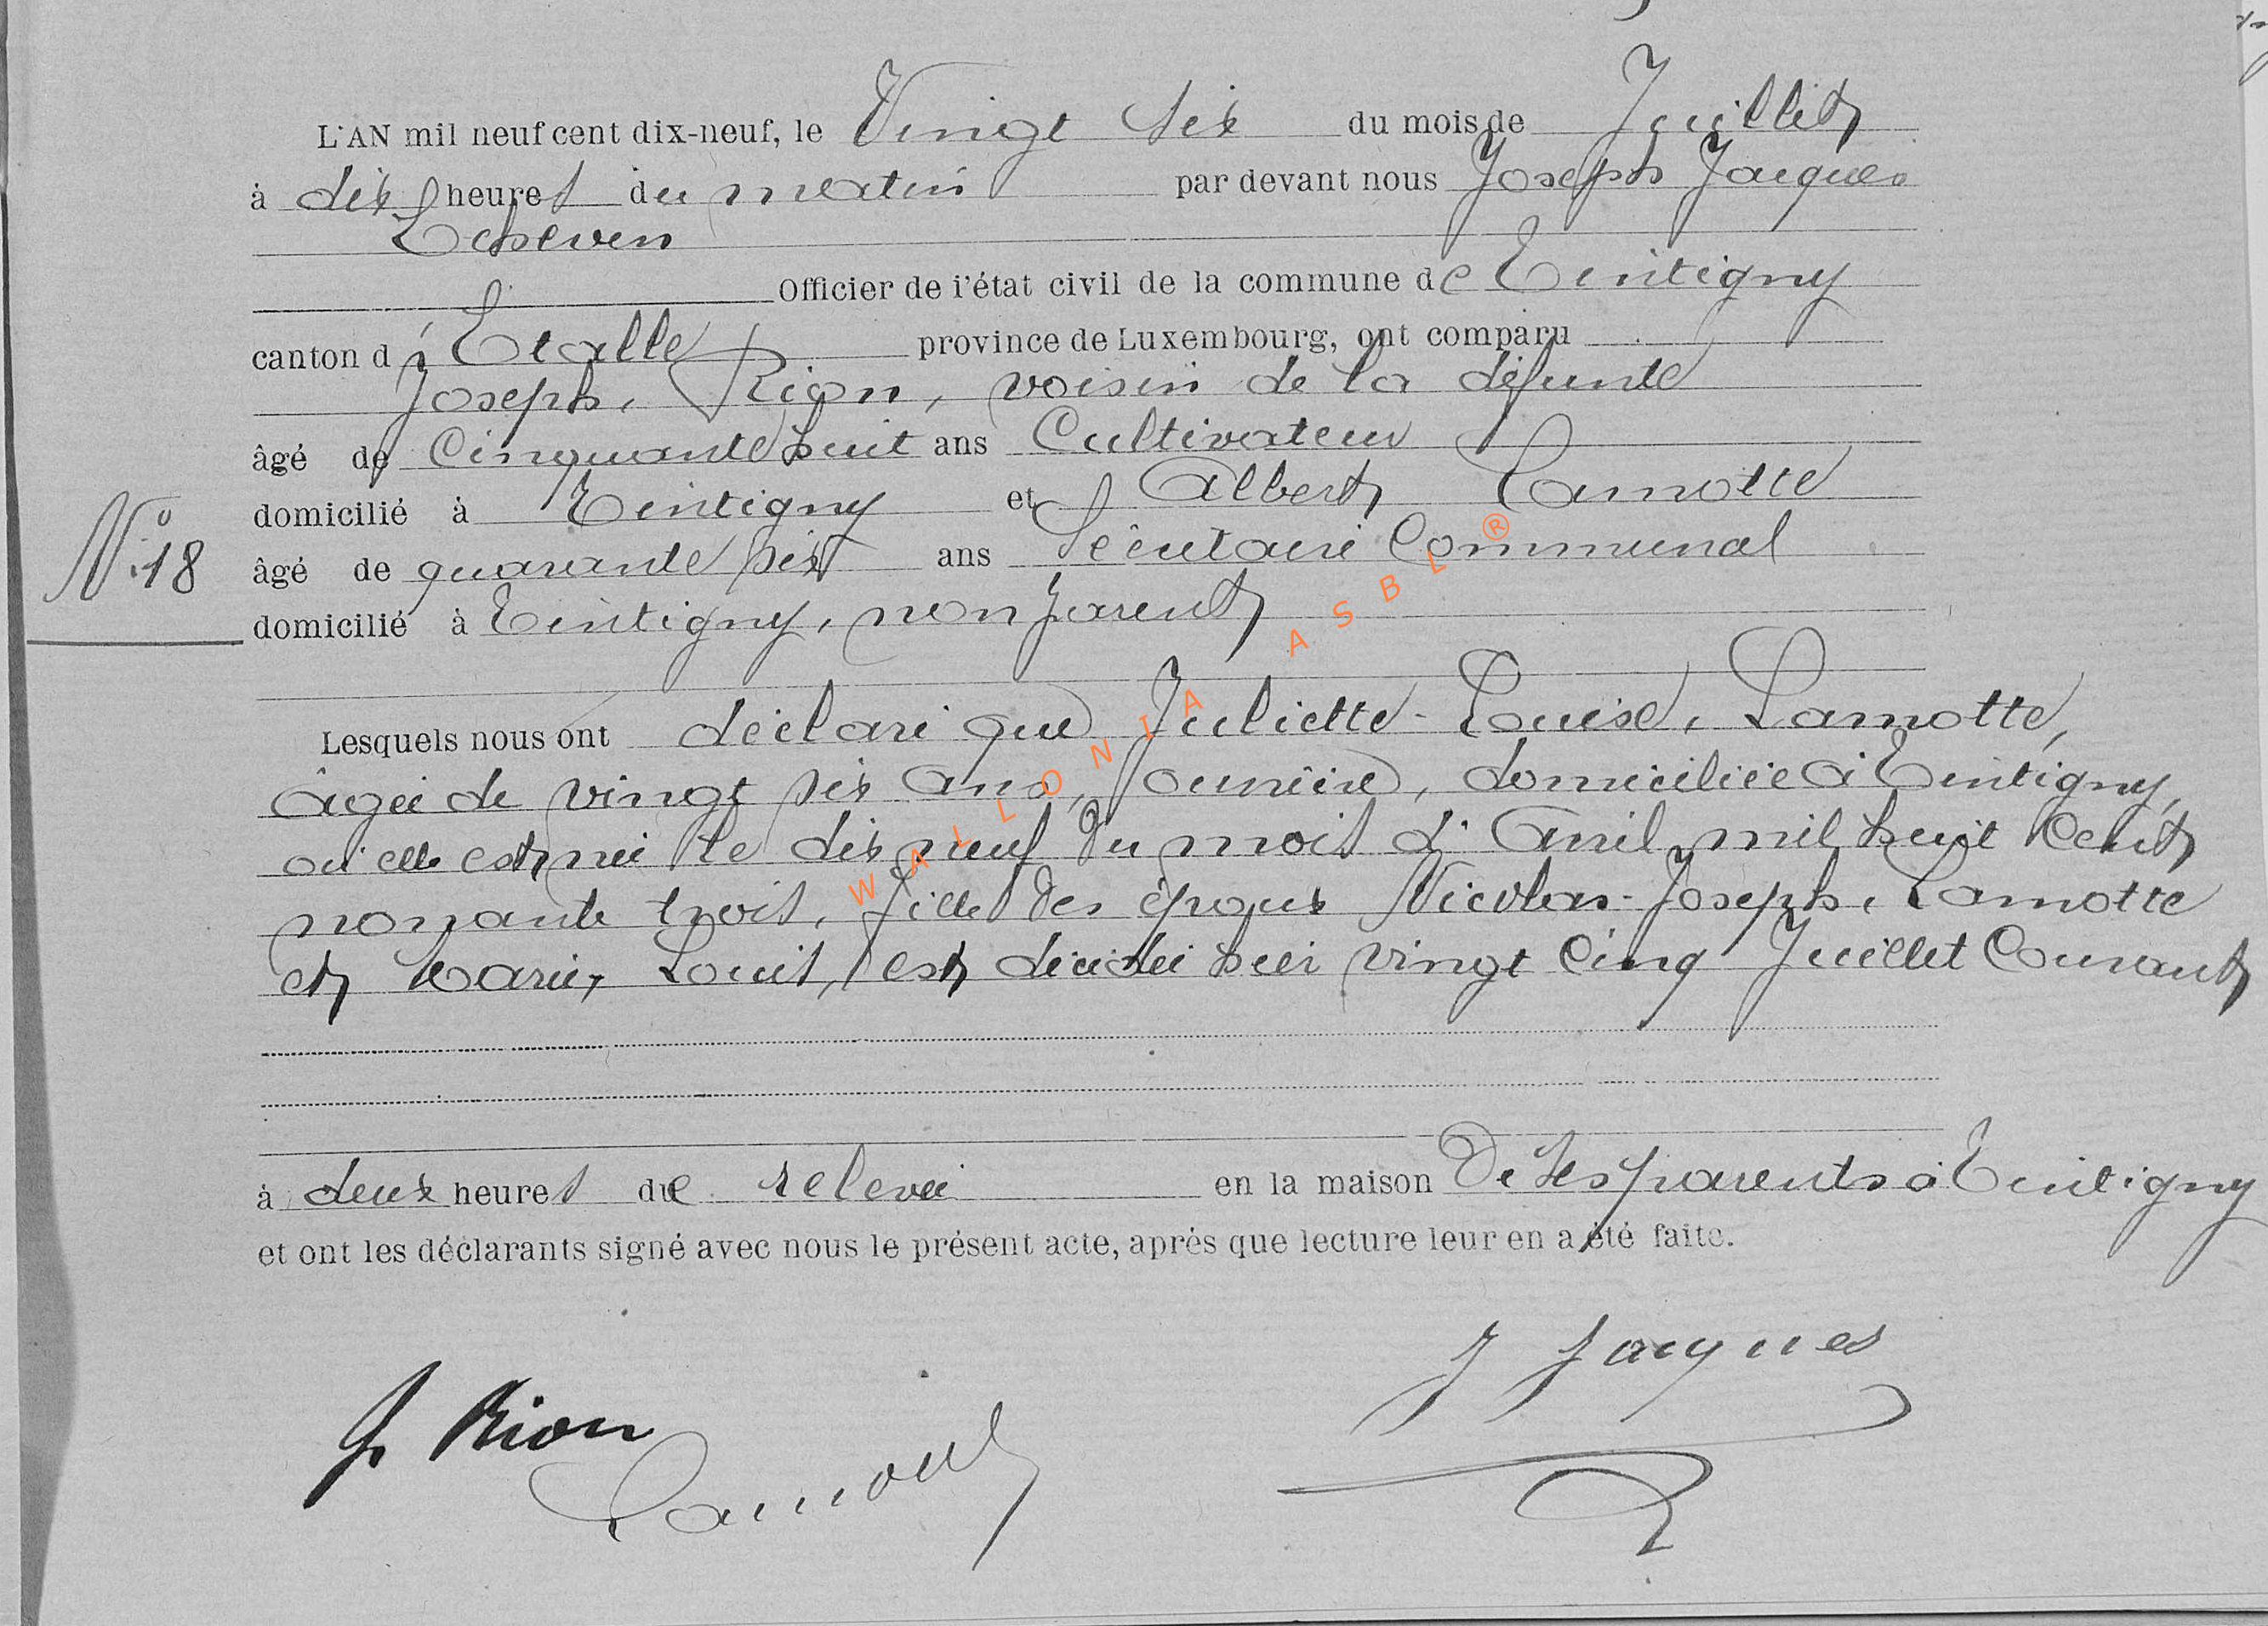 L'AN mil neuf cent dix-neuf, le Vingt six du mois de Juillet
à dix heures du matin par devant nous Joseph Jacques
Echevin
Officier de l'état civil de la commune de Tintigny
canton d'Etalle province de Luxembourg, ont comparu
Joseph, Rion, voisin de la défunte
âgé de Cinquante huit ans Cultivateur
domicilié à Tintigny et Albert Lamotte
N° 18
âgé de quarante six ans Secrétaire Communal
domicilié à Tintigny, non parent
Lesquels nous ont déclaré que Juliette-Louise, Lamotte,
âgée de vingt six ans, ouvrière, domiciliée à Tintigny,
où elle est née le dix neuf du mois d'Avril mil huit Cent
nonante trois, fille des époux Nicolas-Joseph, Lamotte
et Marie, Louis, est décédée hier vingt Cinq Juillet Courant
à deux heures de relevée en la maison de ses parents à Tintigny
et ont les déclarants signé avec nous le présent acte, après que lecture leur en a été faite.
J Jacques
J. Rion
Lamotte
WALLONIA ASBL ®